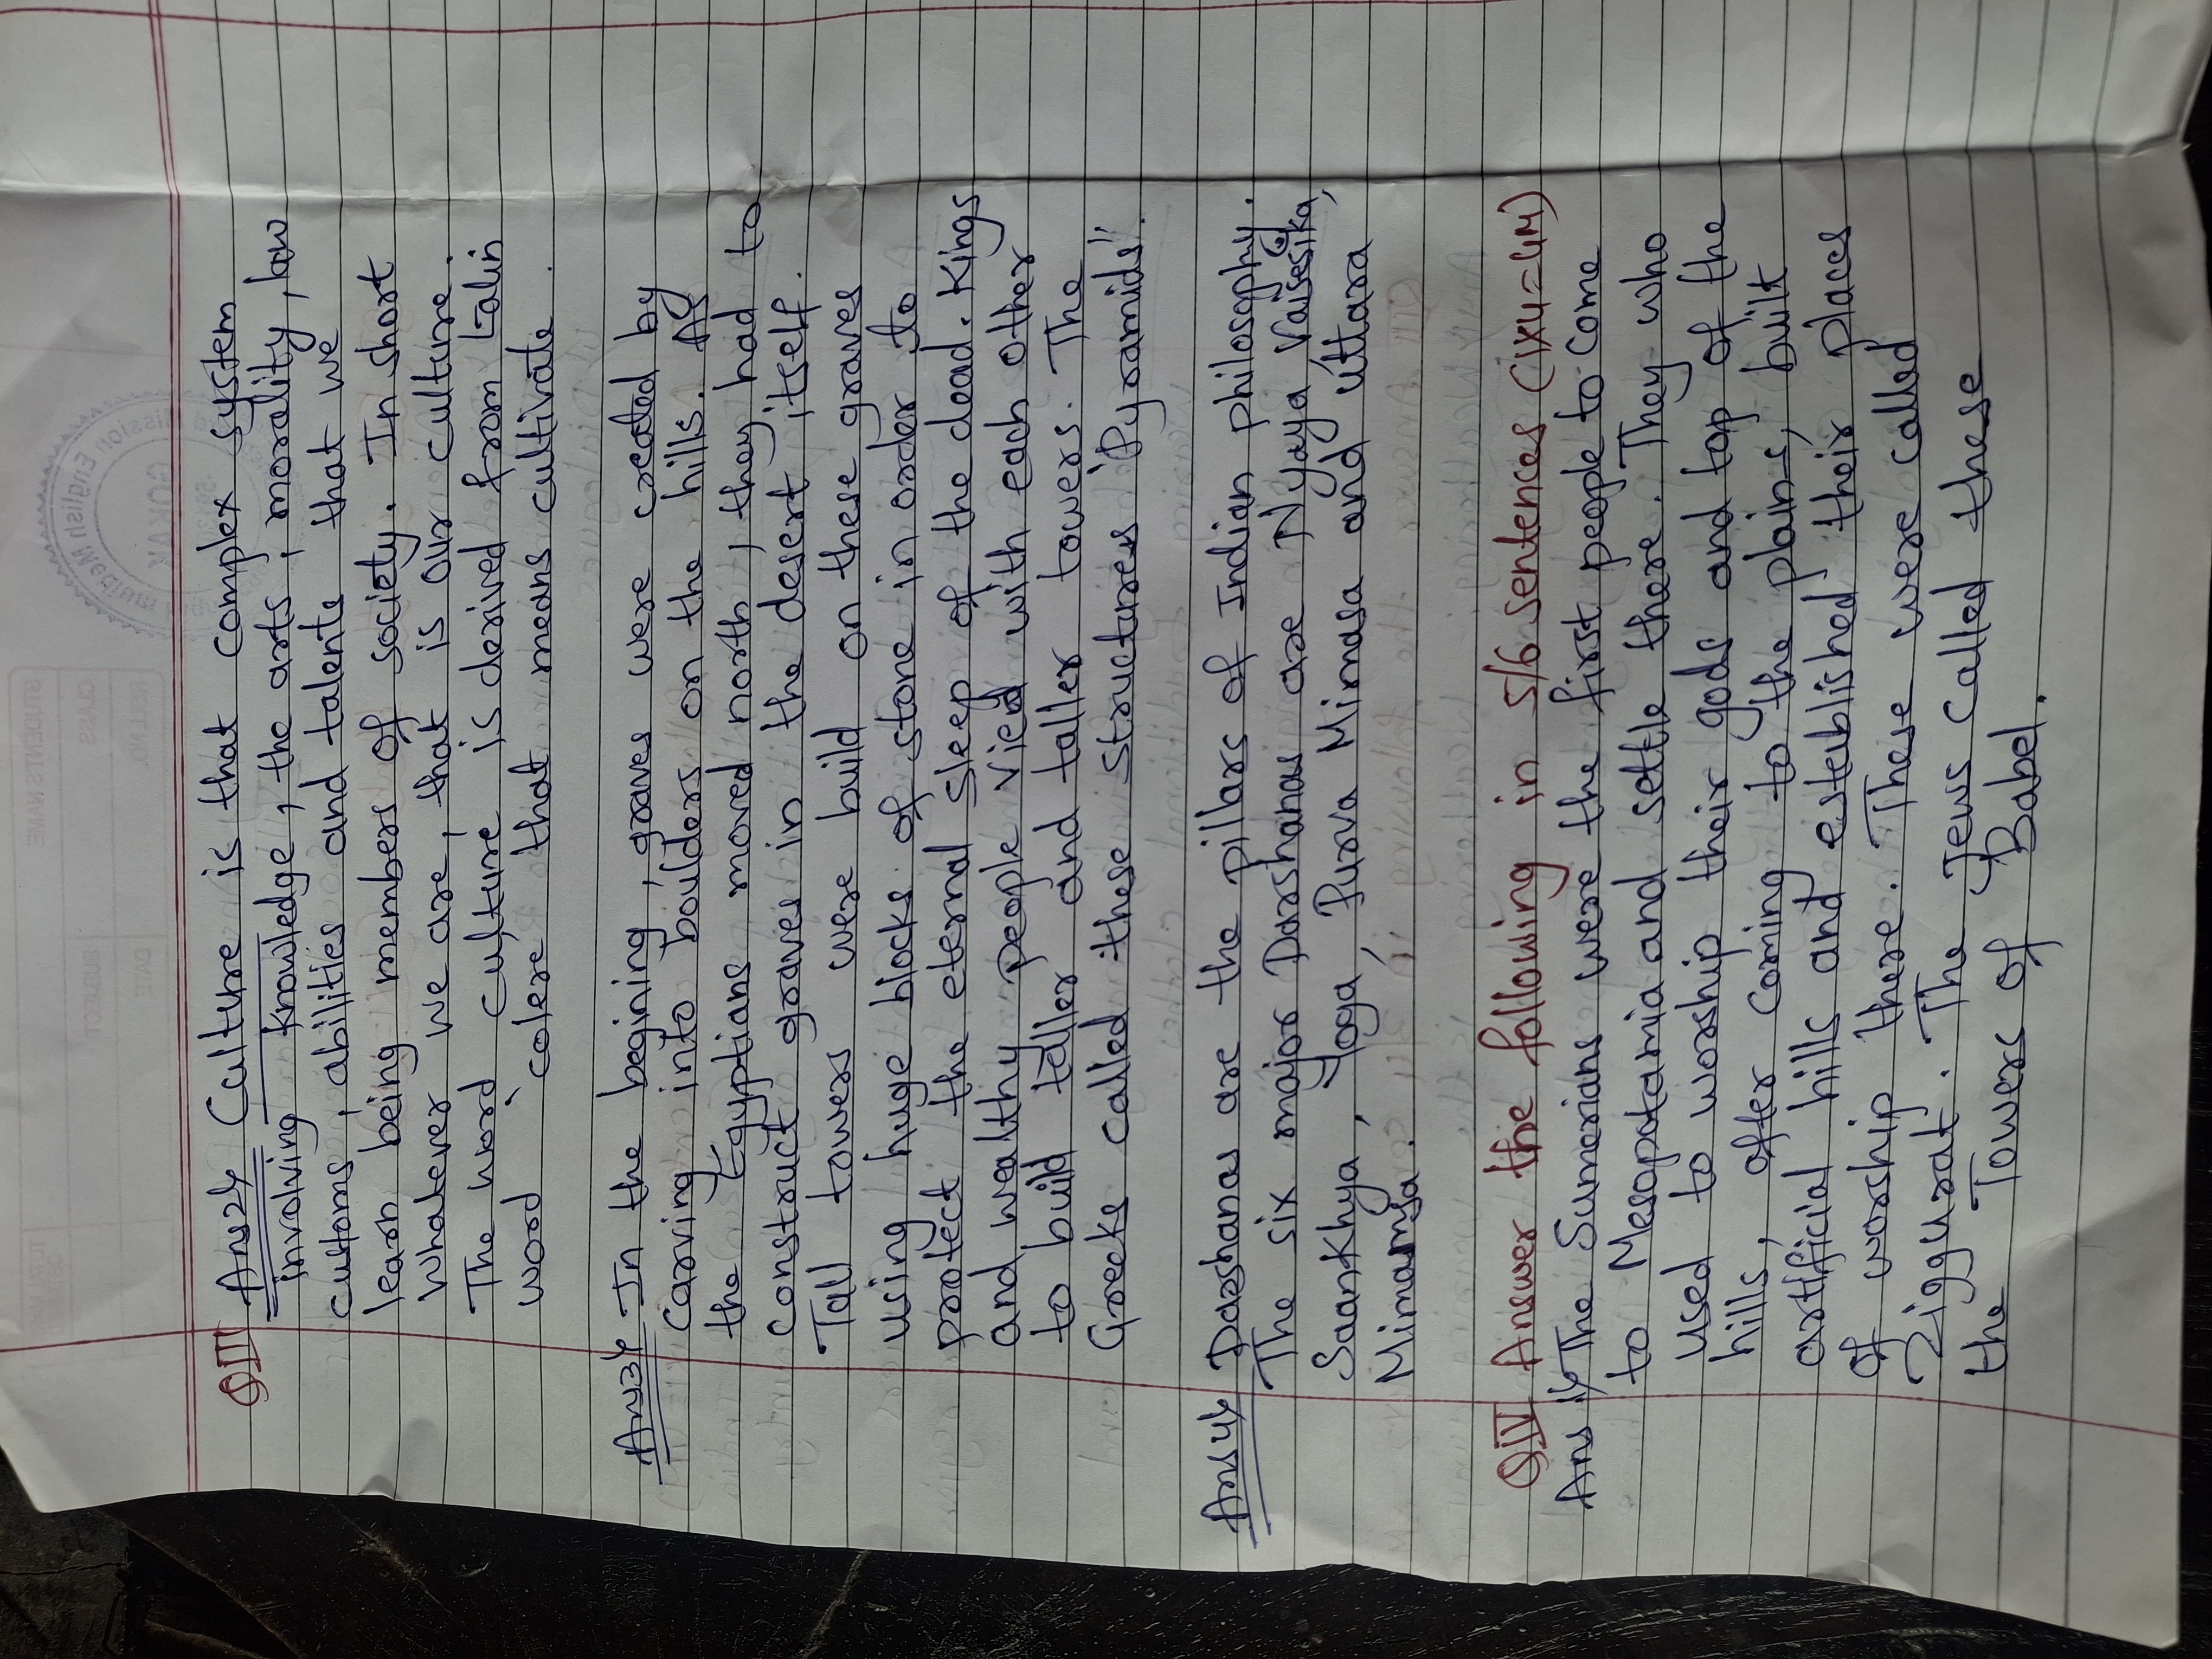 QIII Ans2} Culture is that complex system
involving knowledge, the arts, morality, law
customs, abilities and talents that we
learn being members of society. In short
Whatever we are, that is our culture.
The word culture is derived from Latin
word 'colere' that means cultivate.
Ans3} In the begining, graves were created by
carving into boulders on the hills. As
the Egyptians moved north, they had to
construct graves in the desert itself.
Tall towers were build on these graves
using huge blocks of stone in order to
protect the eternal sleep of the dead. Kings
and wealthy people vied with each other
to build taller and taller towers. The
Greeks called these structures 'Pyramids".
Ans4} Darshanas are the pillars of Indian philosophy.
The six major Darshanas are Nyaya Vaisesika,
Saankhya, Yoga, Purva Mimasa and Uttara
Mimamsa.
QIV Answer the following in 5/6 sentences (1X4=4M)
Ans 1} The Sumerians were the first people to come
to Mesopotamia and settle there. They who
used to worship their gods and top of the
hills, after coming to the plains, built
artificial hills and established their places
of worship there. These were called
Ziggurat. The Jews called these
the Towers of Babel.
STUDENT'S NAME
CLASS
ROLL NO.
SUBJECT
DATE
Mission English Medium
GOKAK